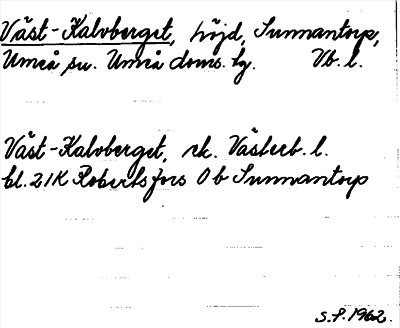 Väst-Kalvberget, höjd, Sunnantorp,
Umeå sn. Umeå doms. hg. Vb. l.
Väst-Kalvberget, rk. Västerb. l.
bl. 21K Robertsfors 0b Sunnantorp
S.F. 1962.